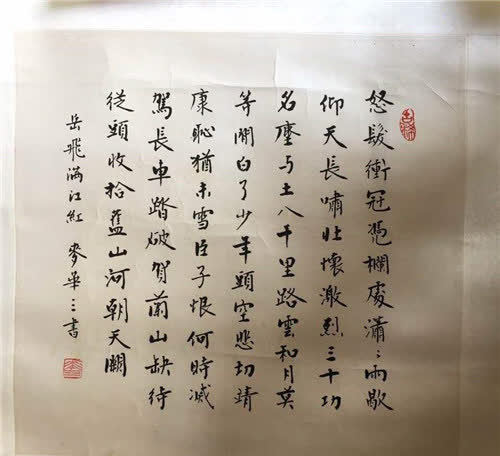 怒髮衝冠憑欄處瀟〻雨歇
仰天長嘯壯懷激烈三十功
名塵与土八千里路雲和月莫
等閒白了少年頭空悲切靖
康恥猶未雪臣子恨何時滅
駕長車踏破賀蘭山缺待
從頭收拾舊山河朝天闕
岳飛滿江紅 麥華三書